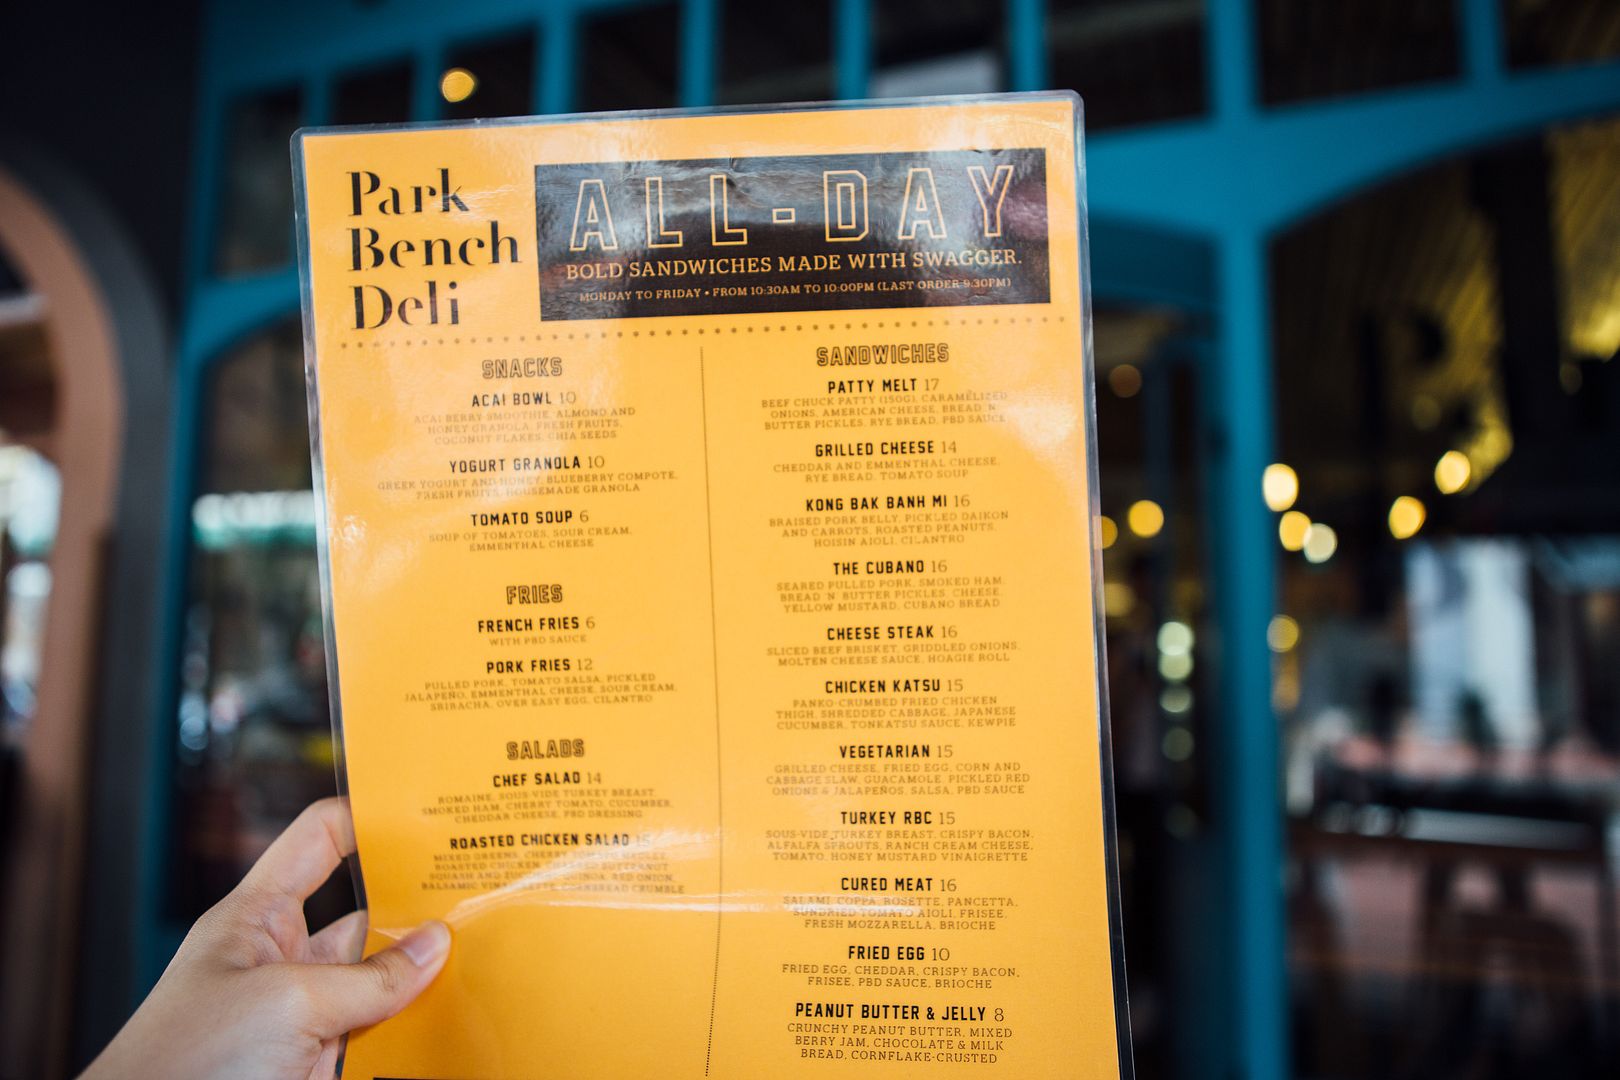 Park
Bench
Deli
ALL-DAY
BOLD SANDWICHES MADE WITH SWAGGER.
MONDAY TO FRIDAY • FROM 10:30AM TO 10:00PM (LAST ORDER 9:30PM)
SNACKS
ACAI BOWL 10
ACAI BERRY SMOOTHIE, ALMOND AND
HONEY GRANOLA, FRESH FRUITS,
COCONUT FLAKES, CHIA SEEDS
YOGURT GRANOLA 10
GREEK YOGURT AND HONEY, BLUEBERRY COMPOTE,
FRESH FRUITS, HOUSEMADE GRANOLA
TOMATO SOUP 6
SOUP OF TOMATOES, SOUR CREAM,
EMMENTHAL CHEESE
FRIES
FRENCH FRIES 6
WITH PBD SAUCE
PORK FRIES 12
PULLED PORK, TOMATO SALSA, PICKLED
JALAPEÑO, EMMENTHAL CHEESE, SOUR CREAM,
SRIRACHA, OVER EASY EGG, CILANTRO
SALADS
CHEF SALAD 14
ROMAINE, SOUS-VIDE TURKEY BREAST,
SMOKED HAM, CHERRY TOMATO, CUCUMBER,
CHEDDAR CHEESE, PBD DRESSING
ROASTED CHICKEN SALAD 15
MIXED GREENS, CHERRY TOMATO MEDLEY,
ROASTED CHICKEN, CHARRED BUTTERNUT
SQUASH AND ZUCCHINI, QUINOA, RED ONION,
BALSAMIC VINAIGRETTE, CORNBREAD CRUMBLE
SANDWICHES
PATTY MELT 17
BEEF CHUCK PATTY (150G), CARAMELIZED
ONIONS, AMERICAN CHEESE, BREAD 'N'
BUTTER PICKLES, RYE BREAD, PBD SAUCE
GRILLED CHEESE 14
CHEDDAR AND EMMENTHAL CHEESE,
RYE BREAD, TOMATO SOUP
KONG BAK BANH MI 16
BRAISED PORK BELLY, PICKLED DAIKON
AND CARROTS, ROASTED PEANUTS,
HOISIN AIOLI, CILANTRO
THE CUBANO 16
SEARED PULLED PORK, SMOKED HAM,
BREAD 'N' BUTTER PICKLES, CHEESE,
YELLOW MUSTARD, CUBANO BREAD
CHEESE STEAK 16
SLICED BEEF BRISKET, GRIDDLED ONIONS,
MOLTEN CHEESE SAUCE, HOAGIE ROLL
CHICKEN KATSU 15
PANKO-CRUMBED FRIED CHICKEN
THIGH, SHREDDED CABBAGE, JAPANESE
CUCUMBER, TONKATSU SAUCE, KEWPIE
VEGETARIAN 15
GRILLED CHEESE, FRIED EGG, CORN AND
CABBAGE SLAW, GUACAMOLE, PICKLED RED
ONIONS & JALAPEÑOS, SALSA, PBD SAUCE
TURKEY RBC 15
SOUS-VIDE TURKEY BREAST, CRISPY BACON,
ALFALFA SPROUTS, RANCH CREAM CHEESE,
TOMATO, HONEY MUSTARD VINAIGRETTE
CURED MEAT 16
SALAMI, COPPA, ROSETTE, PANCETTA,
SUNDRIED TOMATO AIOLI, FRISEE,
FRESH MOZZARELLA, BRIOCHE
FRIED EGG 10
FRIED EGG, CHEDDAR, CRISPY BACON,
FRISEE, PBD SAUCE, BRIOCHE
PEANUT BUTTER & JELLY 8
CRUNCHY PEANUT BUTTER, MIXED
BERRY JAM, CHOCOLATE & MILK
BREAD, CORNFLAKE-CRUSTED